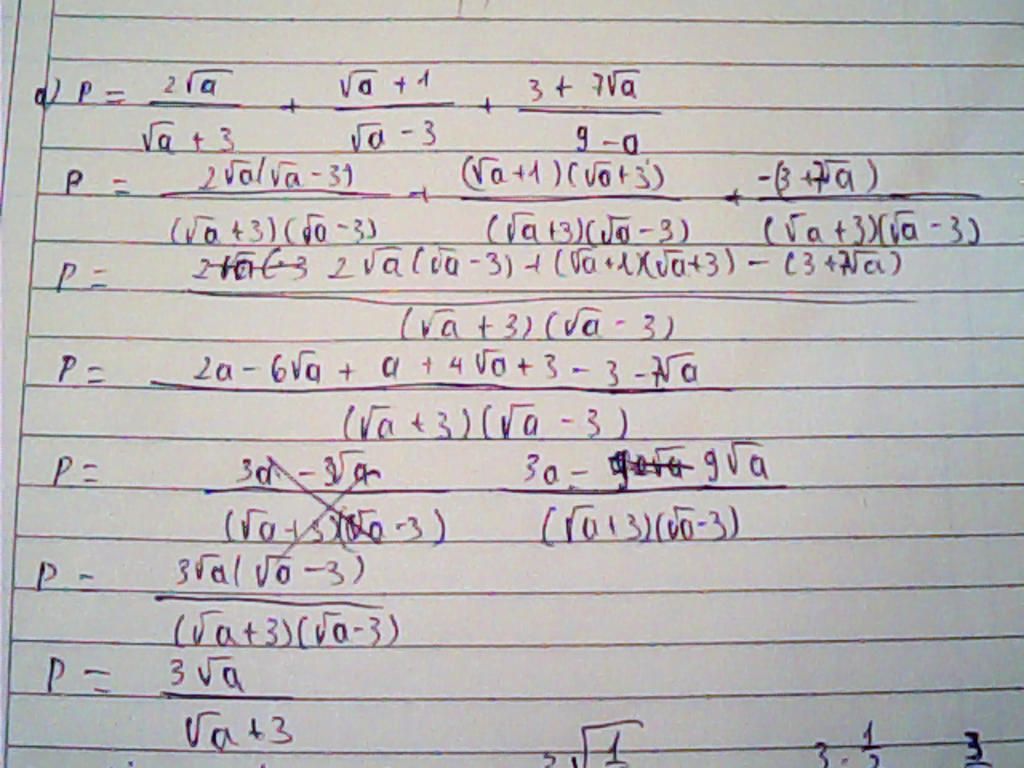 a) P = 2√a / (√a + 3) + (√a + 1) / (√a - 3) + (3 + 7√a) / (9 - a)
P = 2√a(√a - 3) / (√a + 3)(√a - 3) + (√a + 1)(√a + 3) / (√a + 3)(√a - 3) + -(3 + 7√a) / (√a + 3)(√a - 3)
P = 2√a(√a - 3) + (√a + 1)(√a + 3) - (3 + 7√a) / (√a + 3)(√a - 3)
P = 2a - 6√a + a + 4√a + 3 - 3 - 7√a / (√a + 3)(√a - 3)
P = 3a - 3√a / (√a + 3)(√a - 3) 3a - 9√a / (√a + 3)(√a - 3)
P = 3√a(√a - 3) / (√a + 3)(√a - 3)
P = 3√a / (√a + 3)